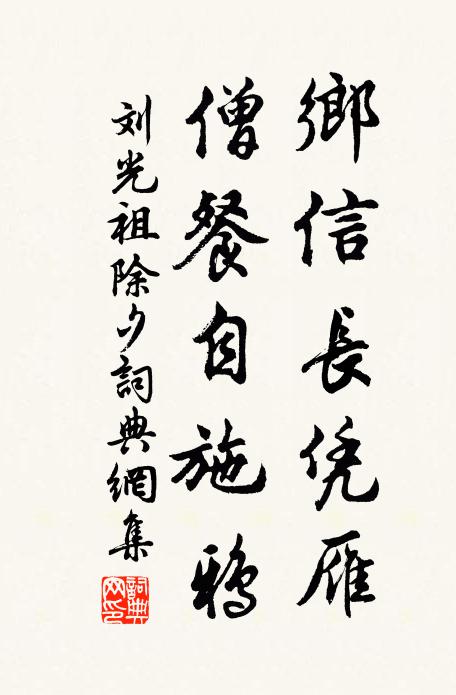 鄉信長凭雁
僧餐自施鴉
刘光祖除夕詞典網集
詞典网印